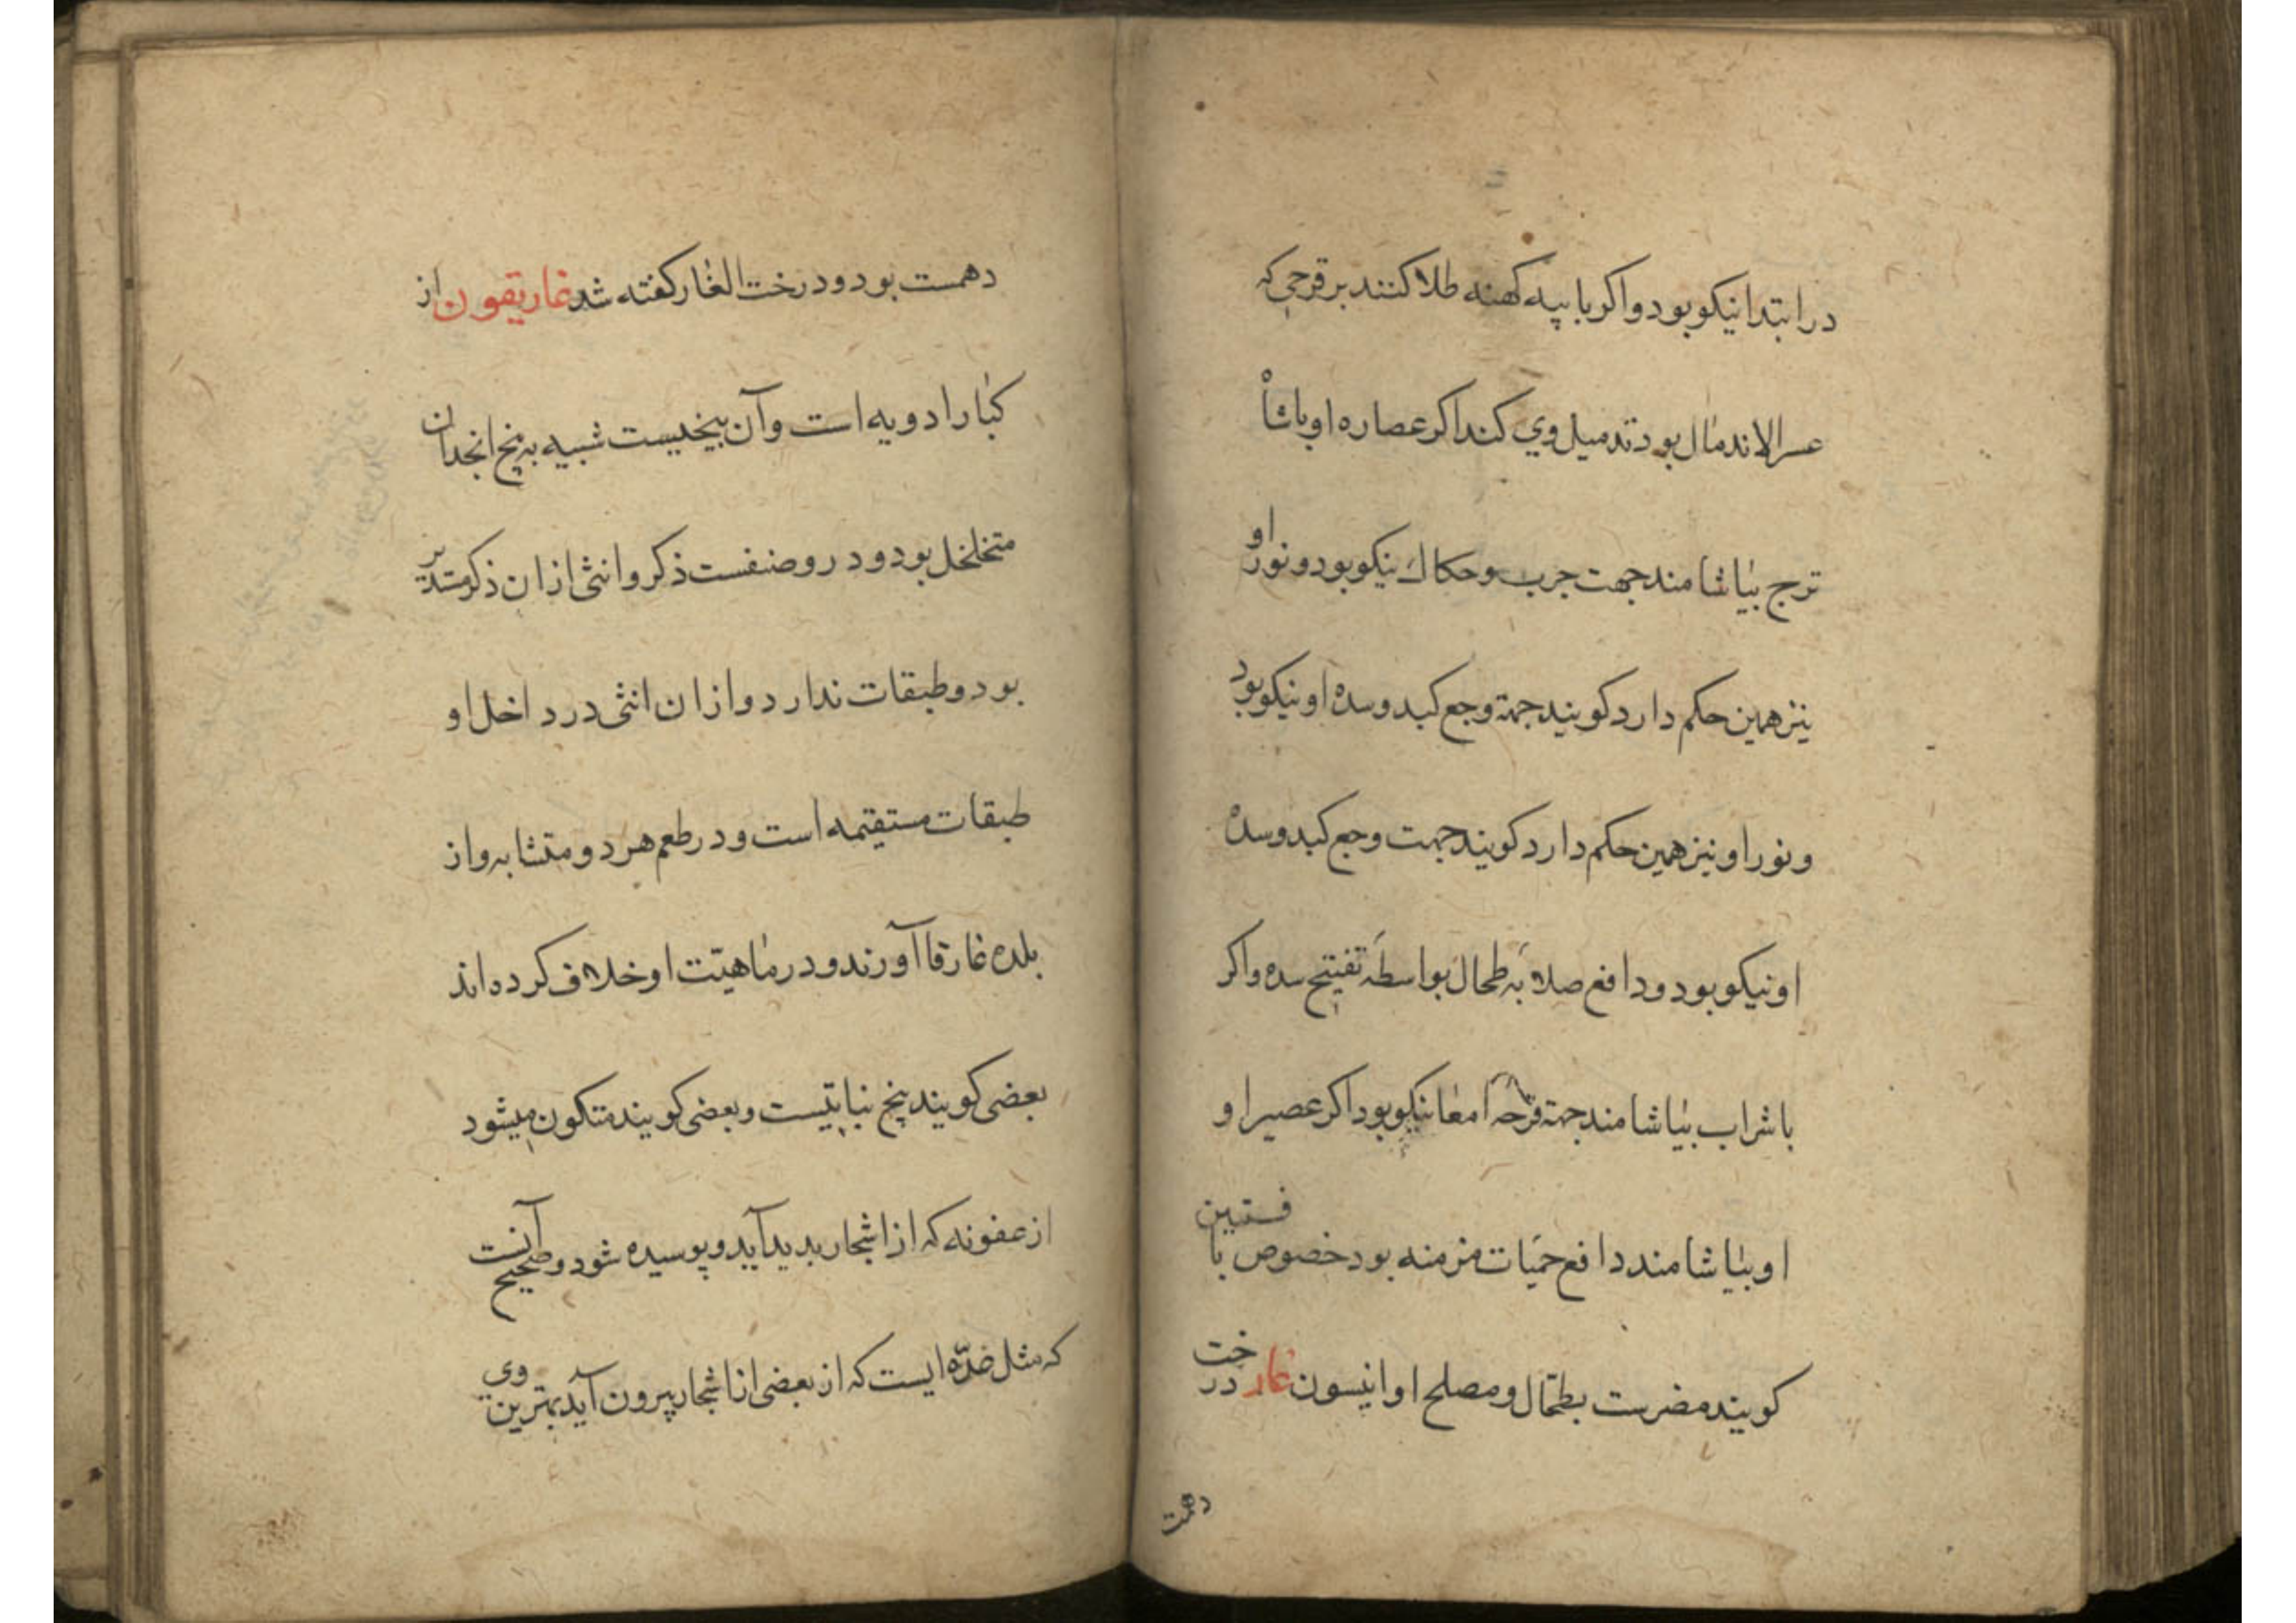 در ابتدا نیکو بود و اکر با پیه کهنه طلا کنند بر قرحی که
عسر الاندمال بود تدمیل وی کند اکر عصاره او با شا
ترج بیاشامند جهت جرب و حکاک نیکو بود و نور او
نیز همین حکم دارد کویند جهة وجع کبد و سده او نیکو بود
و نور او نیز همین حکم دارد کویند جهت وجع کبد و سده
او نیکو بود و دافع صلابه طحال بواسطه تفتیح سده و اکر
با شراب بیاشامند جهة قرحه امعا نیکو بود اکر عصیر او
او بیاشامند دافع حمیات مزمنه بود خصوص با فستین
کویند مضرست بطحال و مصلح او انیسون غار درخت
دهمت
دهمست بود و درخت الغار کفته شد غاریقون از
کبار ادویه است و آن بیخیست شبیه به بیخ انجدان
متخلخل بود و در و صنفست ذکر و انثی از ان ذکر مستدیر
بود و طبقات ندارد و از ان انثی در داخل او
طبقات مستقیمه است و در طعم هر دو متشابه و از
بلده غارقا آورند و در ماهیت او خلاف کرده اند
بعضی کویند بیخ نباتیست و بعضی کویند متکون میشود
از عفونه که از اشجار بدید آید و پوسیده شود و صحیح آنست
که مثل غده ایست که از بعضی از اشجار بیرون آید بهترین وی